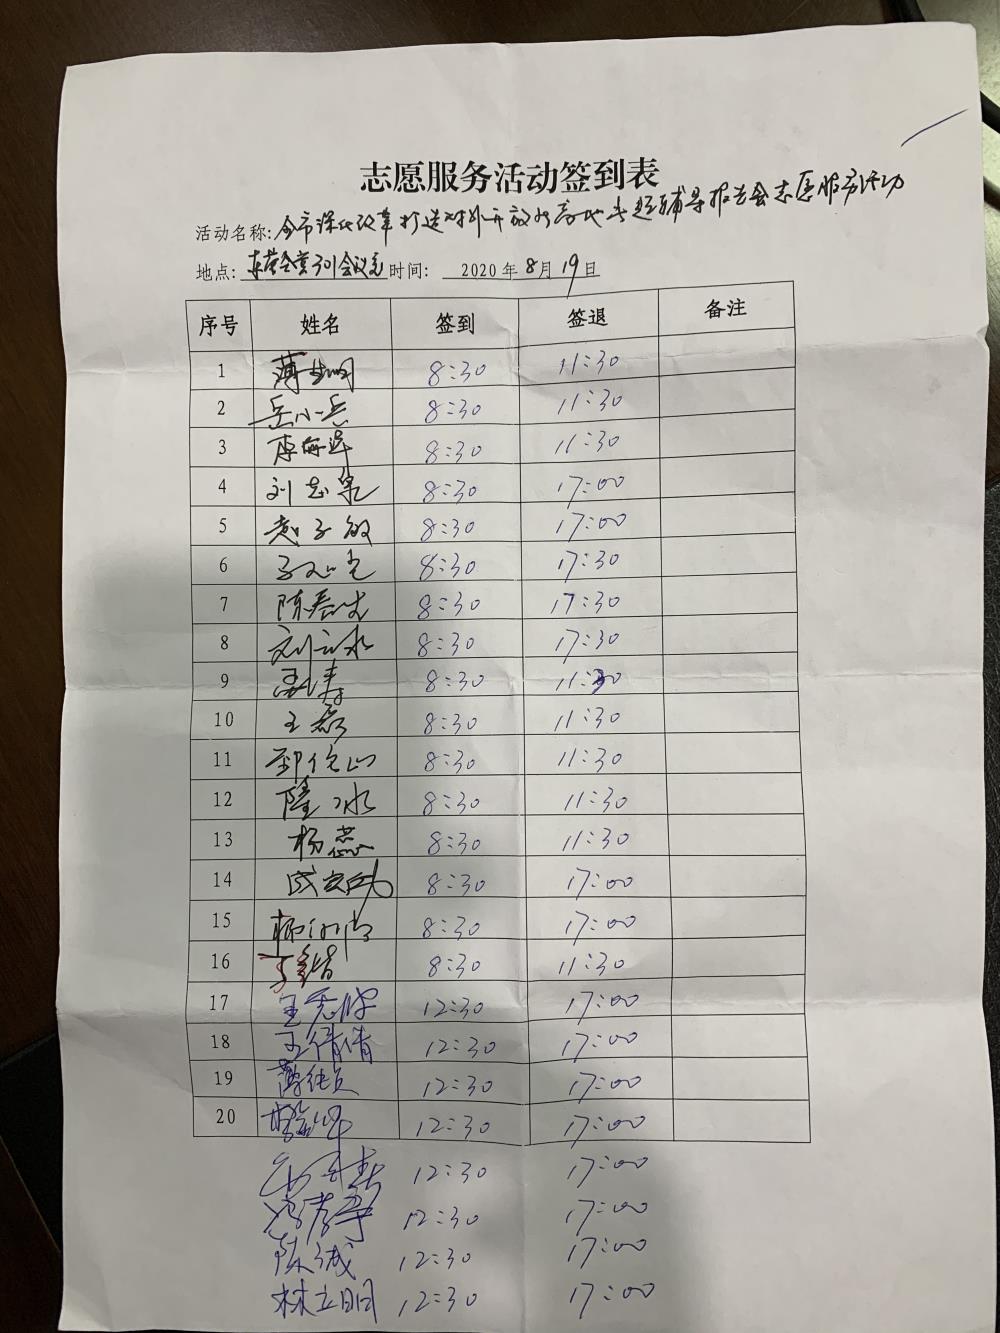 志愿服务活动签到表
活动名称:全市深化改革打造对外开放新高地专题辅导报告会志愿服务活动
地点: 会议室 时间: 2020年8月19日
序号 姓名 签到 签退 备注
1 8:30 11:30
2 岳小兵 8:30 11:30
3 8:30 11:30
4 刘志泉 8:30 17:00
5 黄子敏 8:30 17:00
6 8:30 17:30
7 陈春 8:30 17:30
8 刘立水 8:30 17:30
9 8:30 11:30
10 王磊 8:30 11:30
11 8:30 11:30
12 隆冰 8:30 11:30
13 杨蕊 8:30 11:30
14 8:30 17:00
15 8:30 17:00
16 8:30 11:30
17 王 12:30 17:00
18 王倩倩 12:30 17:00
19 12:30 17:00
20 12:30 17:00
12:30 17:00
12:30 17:00
陈诚 12:30 17:00
林立明 12:30 17:00